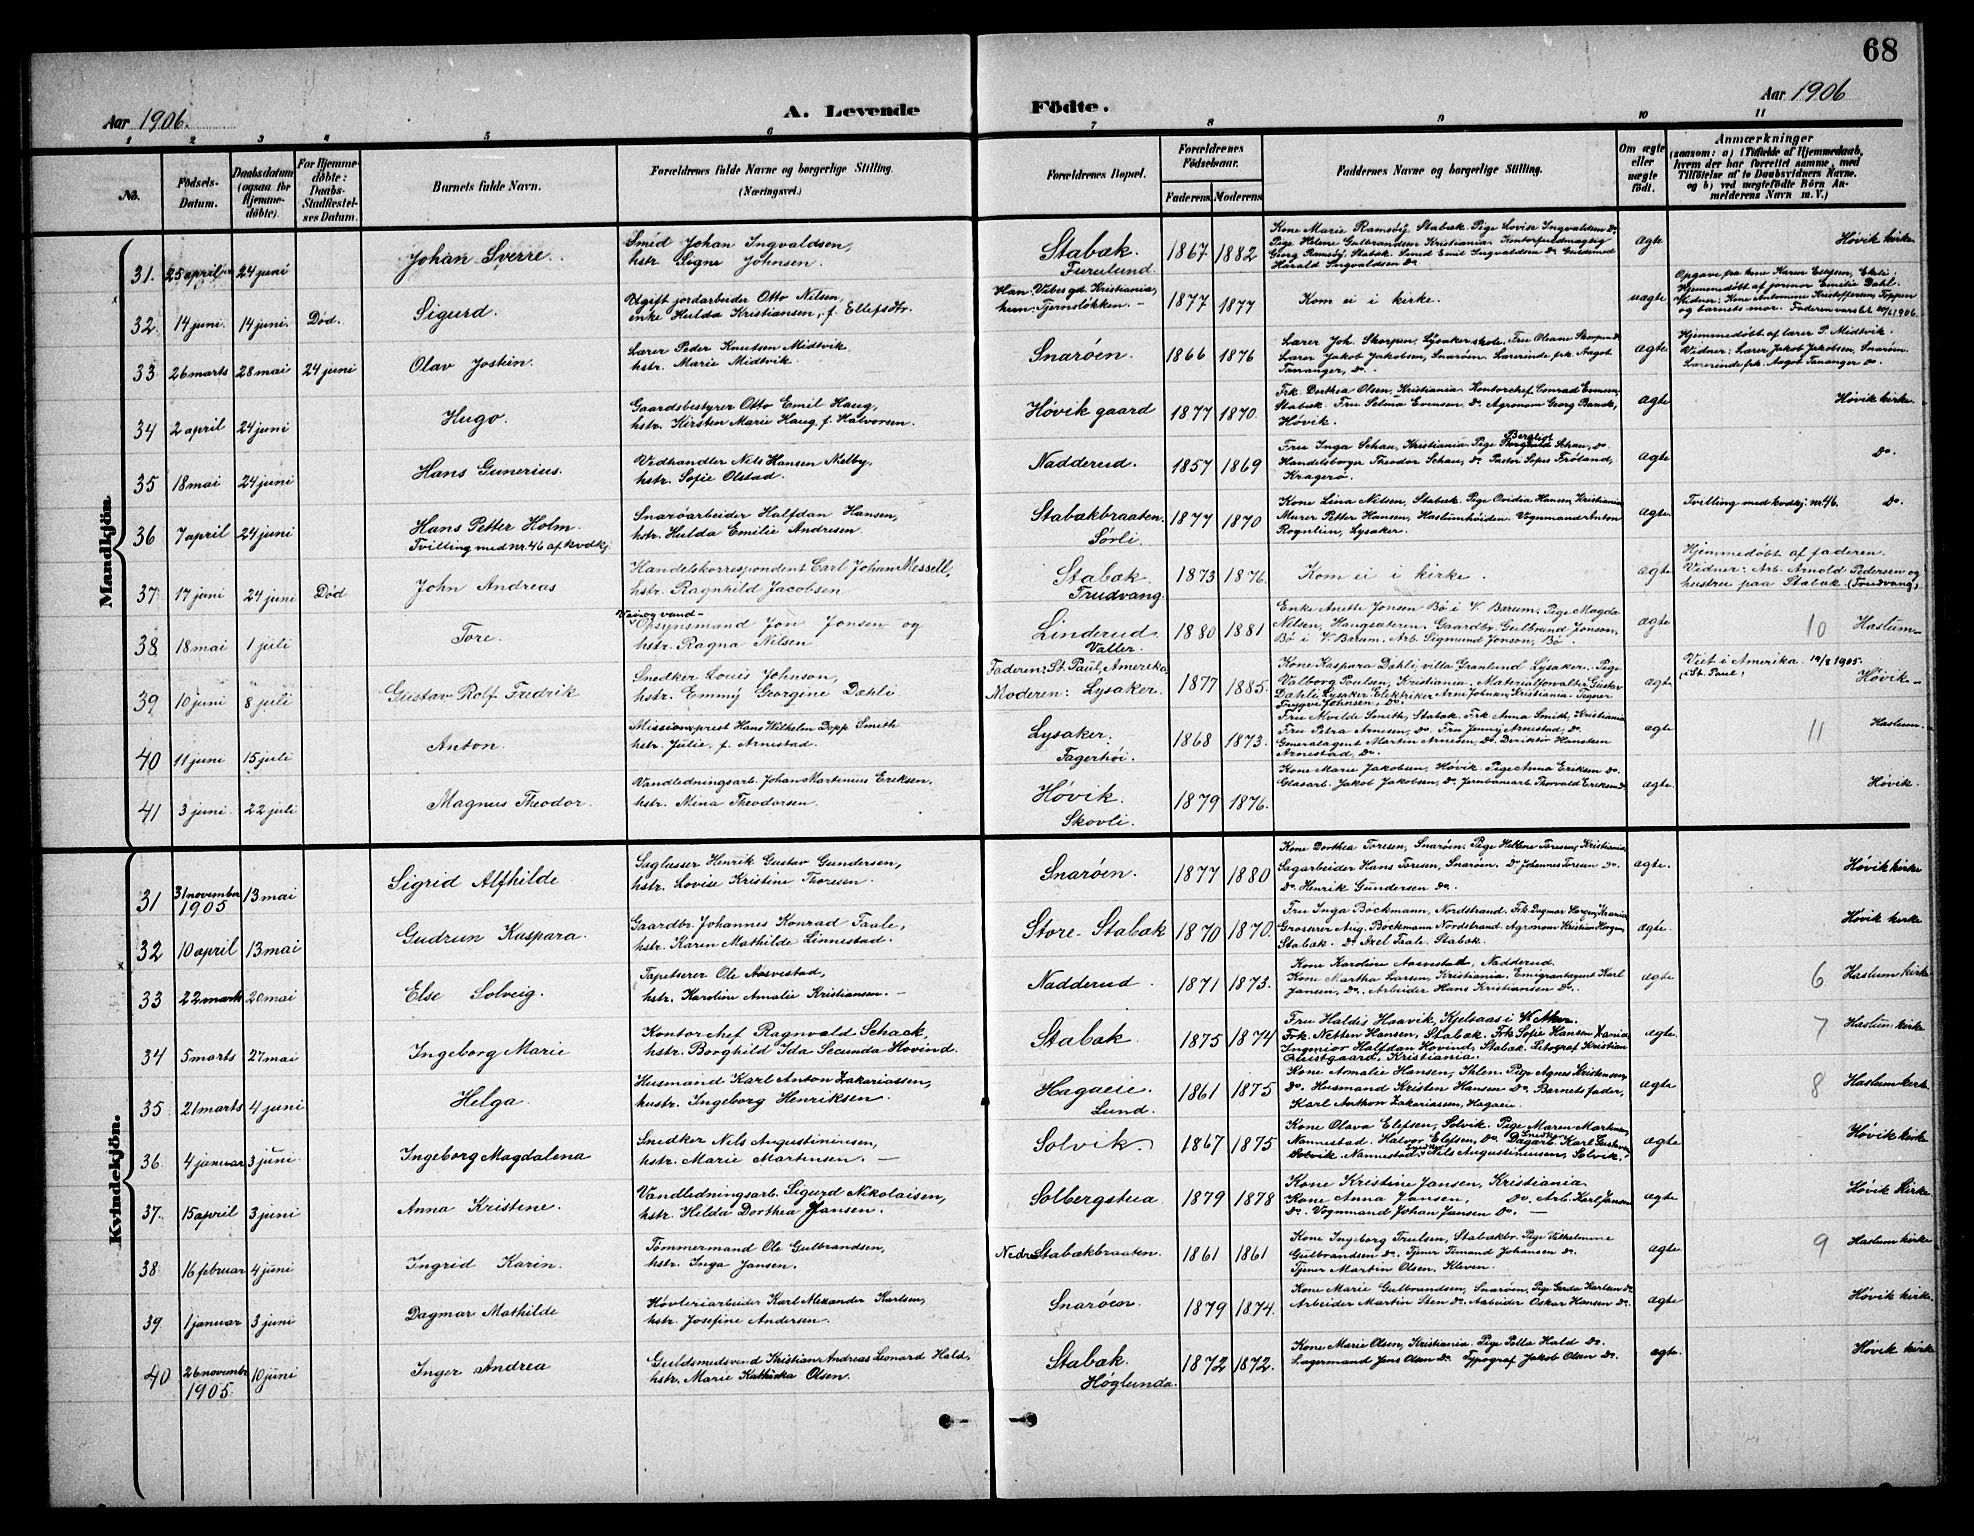 68
Aar 1906.
A. Levende Födte.
Aar 1906
1 2 3 4 5 6 7 8 9 10 11
No.
Födsels-Datum.
Daabsdatum (ogsaa for Hjemmedöbte).
For Hjemmedöbte: Daabs-Stadfæstelses Datum.
Barnets fulde Navn.
Forældrenes fulde Navne og borgerlige Stilling. (Næringsvei.)
Forældrenes Bopæl.
Forældrenes Födselsaar.
Faderens Moderens
Faddernes Navne og borgerlige Stilling.
Om ægte eller uægte födt.
Anmærkninger (saasom: a) i Tilfælde af Hjemmedaab, hvem der har forrettet samme, med Tilföielse af to Daabsvidners Navne. og b) ved uægtefödte Börn Anmelderens Navn m. V.)
Mandkjön
31. 25 april 24 juni Johan Sverre. Smed Johan Ingvaldsen, hstr. Signe Johnsen. Stabæk. Furulund 1867 1882 Kone Marie Ramsöij Stabæk. Pige Lovise Ingvaldsen Do. Pige Helene Gulbrandsen Kristiania. Kontorfuldmægtig Georg Ramsöij, Stabæk. Smed Emil Ingvaldsen Do. Guldsmed Harald Ingvaldsen Do. ægte Høvik kirke
32. 14 juni. 14 juni. Død. Sigurd. Ugift jordarbeider Otto Nilsen, enke Hulda Kristiansen, f. Ellefsdtr. Han: Vibesgd. Kristiania, hun: Tjernsløkken. 1877 1877 Kom ei i kirke. uægte Opgave fra kone Karen Ellefsen, Ekeli. Hjemmedøbt af jormor Emilie Dahl. Vidner: Kone Antomine Kristoffersen, Toppen og barnets mor. Faderen varslet 20/6 1906.
33 26 marts 28 mai 24 juni Olav Jostein. Lærer Peder Knutsen Midtvik hstr. Marie Midtvik. Snarøen. 1866 1876 Lærer Joh. Skorpen, Lysaker skole. Fru Oleane Skorpen Do. Lærer Jakob Jakobsen, Snarøen. Lærerinde frk. Aagot Tananger, Do. ægte Hjemmedøbt af lærer P. Midtvik. Vidner: Lærer Jakob Jakobsen, Snarøen. Lærerinde frk. Aagot Tananger Do.
34 2 april 24 juni Hugo. Gaardsbestyrer Otto Emil Haug, hstr. Kirsten Marie Haug, f. Halvorsen. Høvik gaard 1877 1870. Frk. Dorthea Olsen, Kristiania. Kontorchef Conrad Evensen, Stabæk. Fru Selma Evensen Do. Agronom Georg Ranck, Høvik. ægte Høvik kirke.
35 18 mai 24 juni Hans Gunerius. Vedhandler Nils Hansen Melby, hstr. Sofie Olstad. Nadderud. 1857 1869 Fru Inga Schau, Kristiania. Pige Bergliot Schau, Do. Handelsborger Theodor Schau, Do. Pastor Sofus Frøland, Kragerø. ægte Do.
36 7 april 24 juni Hans Petter Holm. Tvilling med nr. 46 af kvdkj. Snaröarbeider Halfdan Hansen, hstr. Hulda Emilie Andresen Stabækbraaten. Sörli. 1877 1870 Kone Lina Nilsen, Stabæk. Pige Ovidia Hansen, Kristiania Murer Petter Hansen, Haslumhøiden. Vognmand Anton Rognlien, Lysaker. ægte. Tvilling med kvdkj. nr. 46. Do.
37. 17 juni 24 juni Død John Andreas Handelskorrespondent Carl Johan Messell, hstr. Ragnhild Jacobsen Stabæk Trudvang. 1873 1876. Kom ei i kirke. ægte Hjemmedøbt af faderen. Vidner: Arb. Arnold Pedersen og hustru paa Stabæk (Trudvang)
38 18 mai 1 juli Tore. Vei og vand- Opsynsmand Jon Jonsen og hstr. Ragna Nilsen. Linderud. Valler. 1880 1881 Enke Anette Jonsen Bø i V. Bærum. Pige Magda Nilsen, Haugsæteren. Gaardbr. Gulbrand Jonson, Bø i V. Bærum. Arb. Sigmund Jonson, Bø. ægte 10 Haslum
39 10 juni 8 juli Gustav Rolf Fredrik Snedker Louis Johnson, hstr. Emmy Georgine Dæhli Faderen: St. Paul, Amerika, Moderen: Lysaker. 1877 1885. Kone Kaspara Dæhli, villa Granlund Lysaker. Pige Valborg Poulsen, Kristiania. Materialforvalter Gustav Dæhli, Lysaker. Elektriker Arne Johnsen, Kristiania. Tegner Trygve Johnsen, Do. ægte Viet i Amerika. 19/8 1905. (St. Paul) Høvik
40 11 juni 15 juli Anton. Missionsprest Hans Wilhelm Dopp Smith hstr. Julie, f. Arnestad. Lysaker. Fagerhøi. 1868 1873. Fru Alvilde Smith, Stabæk. Frk. Anna Smith, Kristiania Fru Petra Arnesen, Do. Fru Jenny Arnestad, Do. Generalagent Martin Arnesen, Do. Direktör Hansteen Arnestad, Do. ægte 11 Haslum.
41 3 juni 22 juli Magnus Theodor. Vandledningsarb. Johan Martinius Eriksen, hstr. Mina Theodorsen. Høvik. Skovli. 1879 1876. Kone Marie Jakobsen, Høvik. Pige Anna Eriksen Do. Glasarb. Jakob Jakobsen, Do. Jernbanearb. Thorvald Eriksen Do ægte. Høvik.
Kvindekjön.
31 31 november 1905 13 mai Sigrid Alfhilde Saglasser Henrik Gustav Gundersen, hstr. Lovise Kristine Thoresen. Snarøen. 1877 1880 Kone Dorthea Toresen, Snarøen. Pige Hellene Toresen, Kristiania, Sagarbeider Hans Toresen, Snarøen, Do Johannes Toresen Do. Do. Henrik Gundersen Do. ægte. Høvik kirke
32 10 april 13 mai Gudrun Kaspara. Gaardbr. Johannes Konrad Faale, hstr. Karen Mathilde Linnestad. Store-Stabæk 1870 1870. Fru Inga Böckmann, Nordstrand. Frk. Dagmar Horgen, Krania Grosserer Aug. Böckmann Nordstrand. Agronom Kristian Horgen, Stabæk. Do. Axel Faale. Stabæk. ægte. Høvik kirke
33 22 marts 20 mai Else Solveig. Tapetserer Ole Aasvestad, hstr. Karoline Amalie Kristiansen. Nadderud 1871 1873. Kone Karoline Aasnstad, Nadderud. Kone Martha Larsen, Kristiania. Emigrantagent Karl Jansen, Do. Arbeider Hans Kristiansen Do. ægte 6 Haslum kirke
34 5 marts 27 mai Ingeborg Marie Kontorchef Ragnvald Schack, hstr. Borghild Ida Secunda Hovind. Stabæk 1875 1874 Fru Haldis Haavik, Kjelsaas i V. Aker. Frk. Netten Hansen, Stabæk. Frk. Sofie Hansen Xania Ingeniør Halfdan Hovind, Stabæk. Litograf Kristian Qvistgaard, Kristiania. ægte. 7 Haslum kirke
35 21 marts 4 juni Helga. Husmand Karl Anton Zakariassen, hustr. Ingeborg Henriksen. Hagaeie. Lund. 1861 1875 Kone Amalie Hansen, Ihlen. Pige Agnes Kristensen, Do. Husmand Kristen Hansen Do. Barnets fader, Karl Anthon Zakariassen, Hagaeie. ægte 8 Haslum kirke
36. 4 januar 3 juni. Ingeborg Magdalena Snedker Nils Augustiniusen, hstr. Marie Martinsen. Solvik. 1867 1875 Kone Olava Elefsen, Solvik. Pige Maren Martinsen, Nannestad. Halvor Elefsen, Do. Dagarb. Karl Gustavsen Solvik. Nannestad. Snedker Nils Augustiniusen, Solvik. ægte Høvik kirke
37. 15 april 3 juni Anna Kristine. Vandledningsarb. Sigurd Nikolaisen, hstr. Hilda Dorthea Jansen. Solbergstua 1879 1878 Kone Kristine Jansen, Kristiania Kone Anna Jansen, Do. Arb. Karl Jansen Do. Vognmand Johan Jansen Do. ægte Høvik Kirke
38 16 februar 4 juni Ingrid Karin. Tømmermand Ole Gulbrandsen, hstr. Inga Jansen. Nedre Stabækbraaten. 1861 1861 Kone Ingeborg Truelsen, Stabækbr. Pige Vilhelmine Gulbrandsen Do. Tjener Timand Johansen Do. Tjener Martin Olsen, Kleven. ægte 9 Haslum kirke
39. 1 januar 3 juni Dagmar Mathilde Høvleriarbeider Karl Alexander Karlsen, hstr. Josefine Andersen. Snarøen. 1879 1874. Kone Marie Gulbrandsen, Snarøen, Pige Gerda Karlsen Do. Arbeider Martin Sten Do. Arbeider Oskar Hansen Do. ægte Høvik kirke.
40 26 novembr 1905. 10 juni Inger Andrea Guldsmedsvend Kristian Andreas Leonard Hald, hstr. Marie Kathinka Olsen. Stabæk. Høglunda. 1872 1872. Kone Marie Olsen, Kristiania. Pige Polla Hald Do. Lagermand Jens Olsen Do. Typograf Jakob Olsen Do. ægte. Høvik kirke